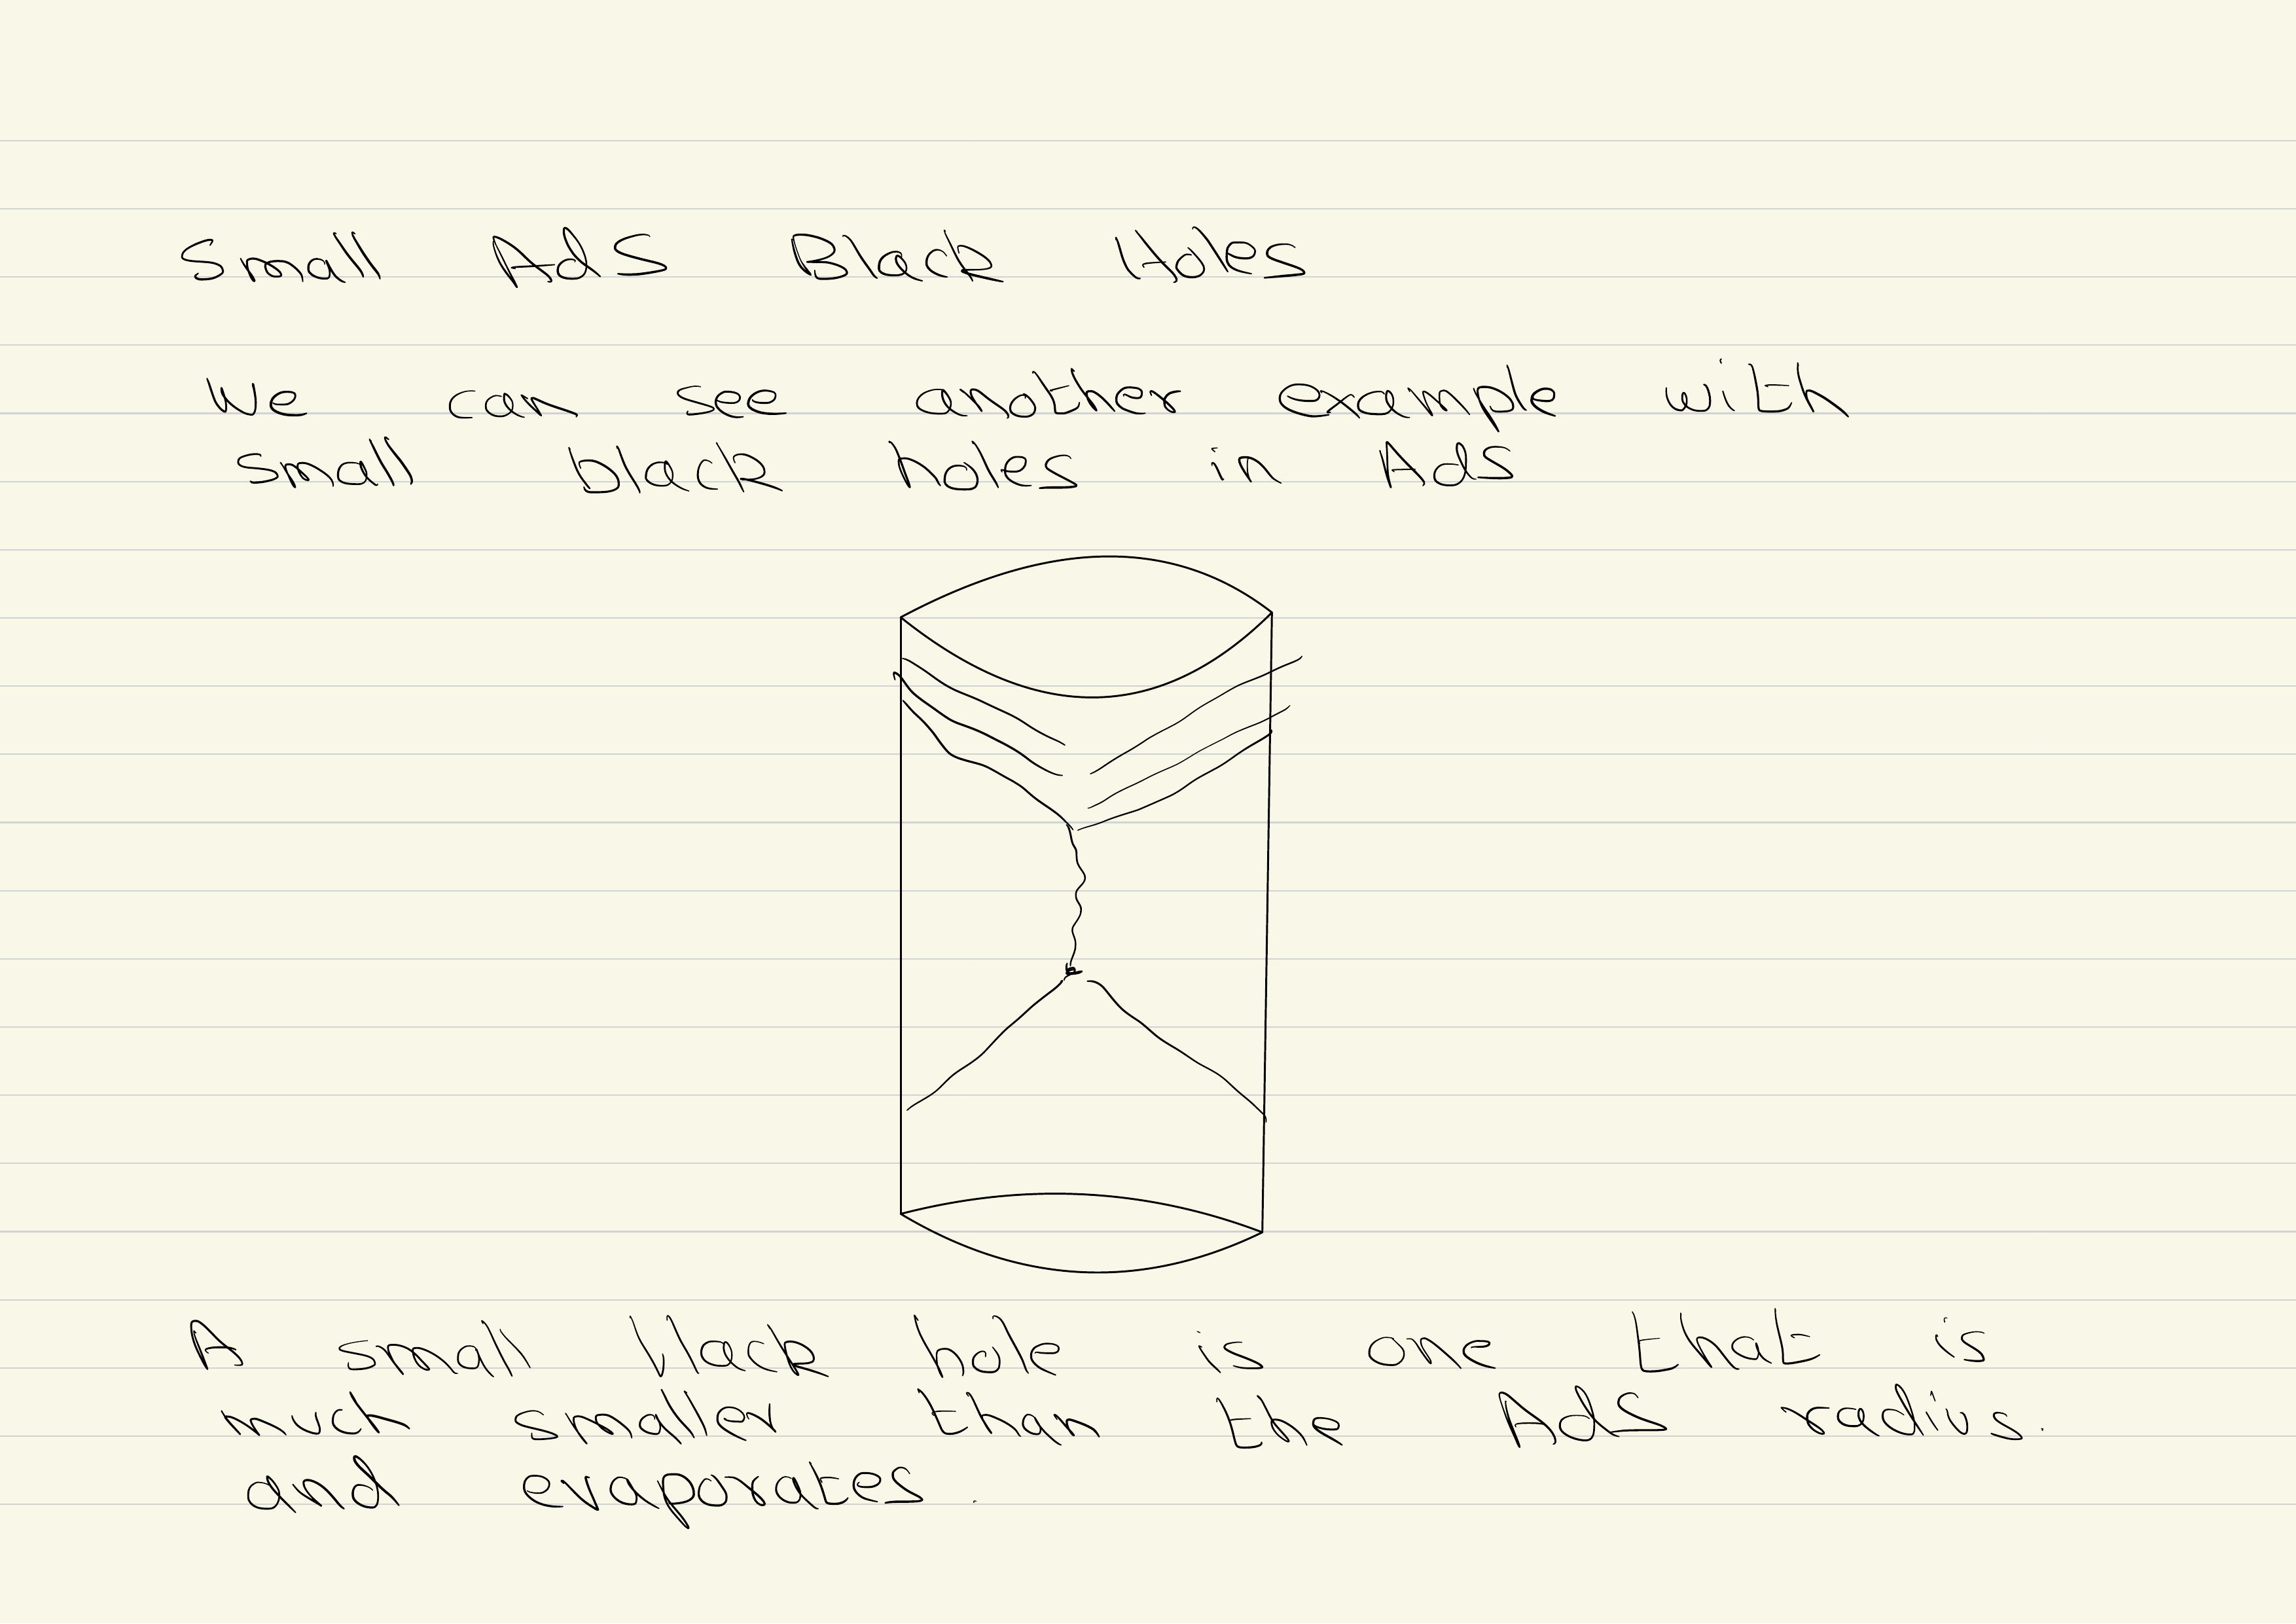 Small AdS Black Holes
We can see another example with
small black holes in AdS
A small black hole is one that is
much smaller than the AdS radius.
and evaporates.